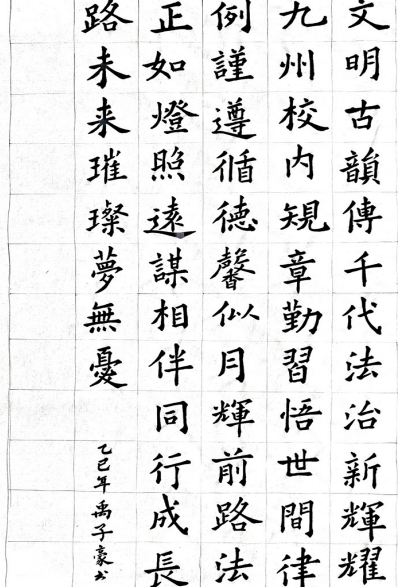 文明古韻傳千代法治新輝耀
九州校内規章勤習悟世間律
例謹遵循德馨似月輝前路法
正如燈照遠謀相伴同行成長
路未来璀璨夢無憂
乙巳年禹子豪书